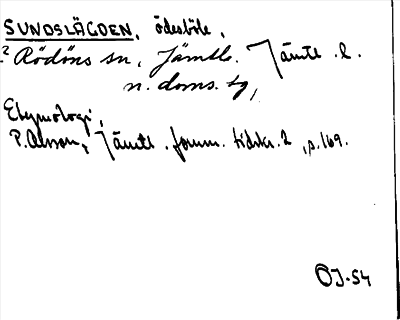 SUNDSLÄGDEN, ödesböle,
? Rödöns sn, Jämtl. Jämtl. l.
n. doms. tg,
Etymologi,
P. Olsson, Jämtl. fornm. tidskr. 2, s. 169.
OJ-54